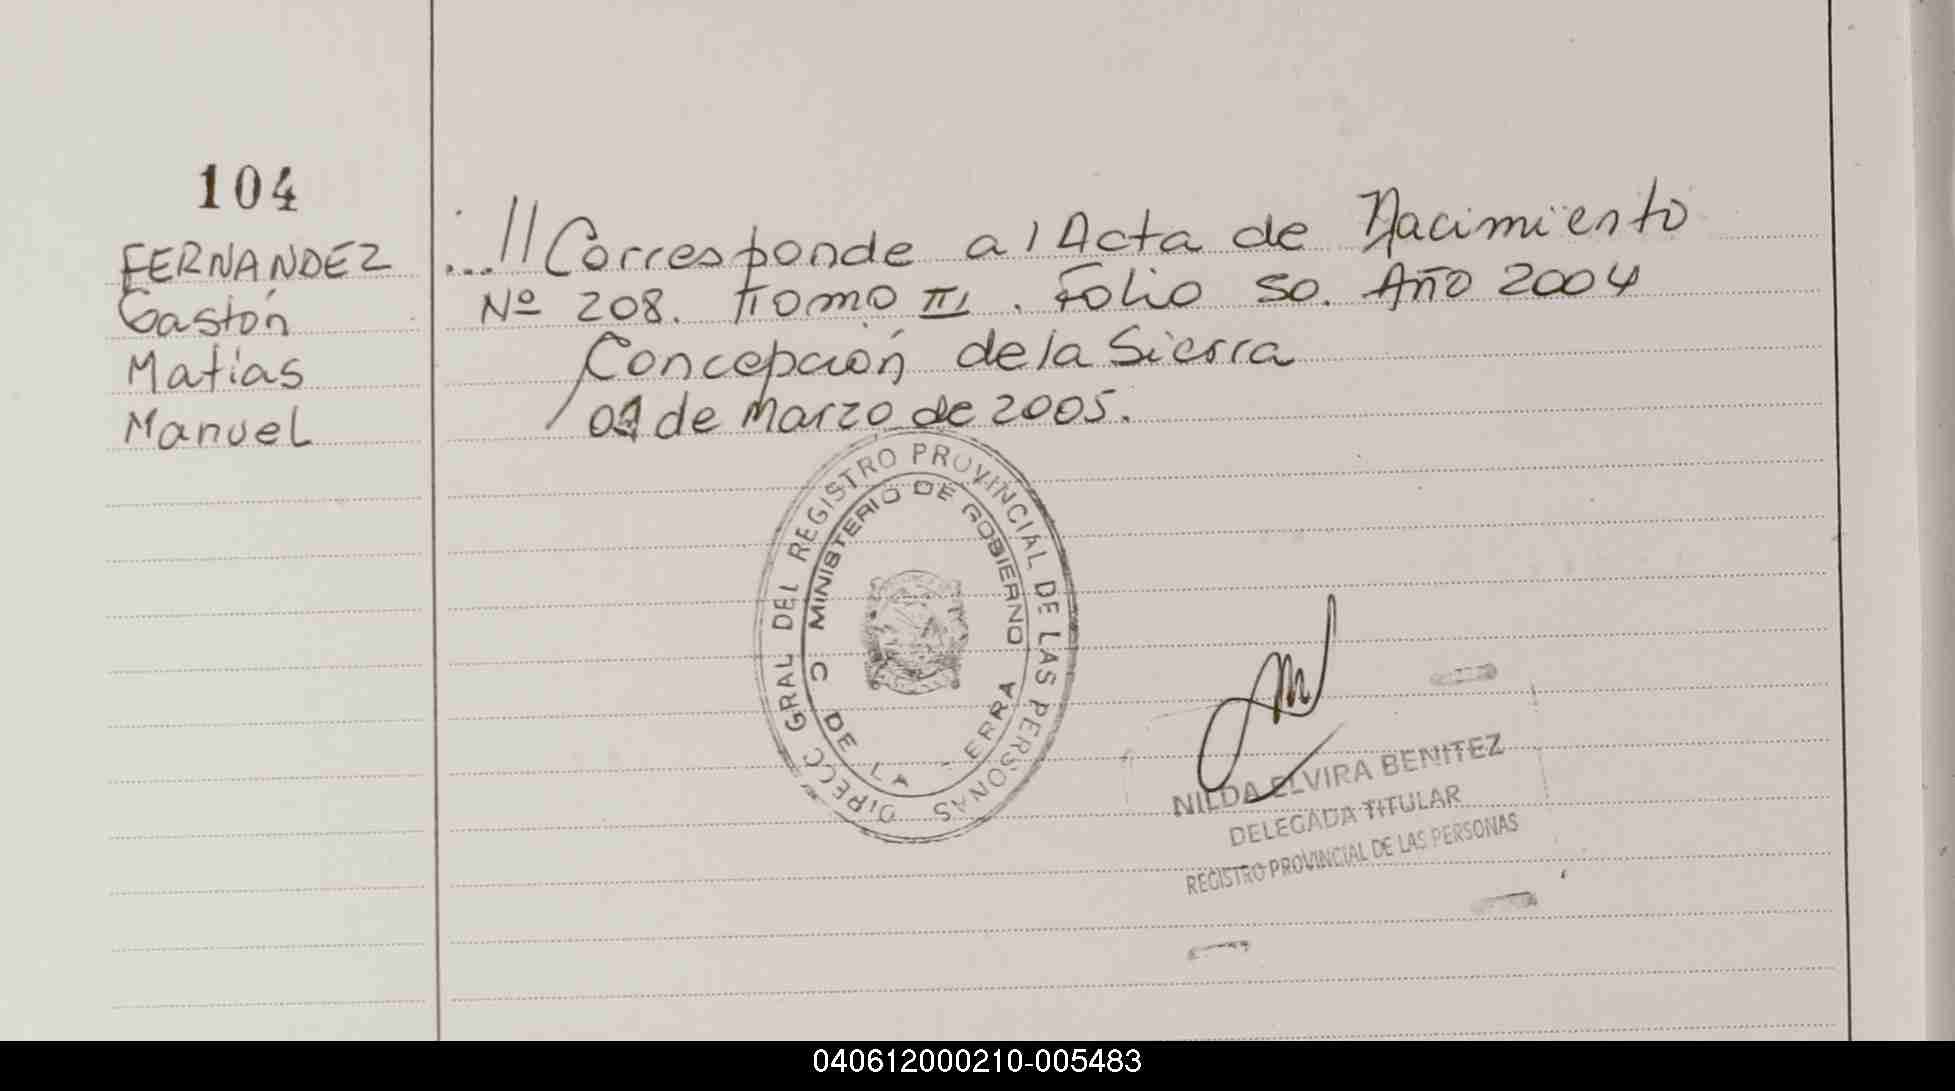 104
FERNANDEZ
Gastón
Matías
Manuel
...// Corresponde al Acta de Nacimiento
Nº 208. Tomo III. Folio 50. Año 2004
Concepción de la Sierra
01 de Marzo de 2005.
DIRECC GRAL DEL REGISTRO PROVINCIAL DE LAS PERSONAS
MINISTERIO DE GOBIERNO
C DE LA ERRA
NILDA ELVIRA BENITEZ
DELEGADA TITULAR
REGISTRO PROVINCIAL DE LAS PERSONAS
040612000210-005483